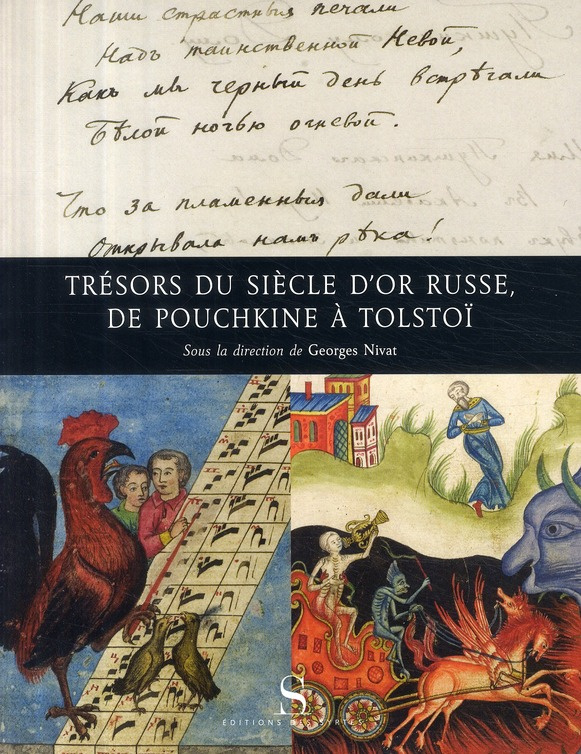 Наши страстныя печали
Надъ таинственной Невой,
Какъ мы черный день встрѣчали
Бѣлой ночью огневой.
Что за пламенныя дали
Открывала намъ рѣка!
TRÉSORS DU SIÈCLE D'OR RUSSE,
DE POUCHKINE À TOLSTOÏ
Sous la direction de Georges Nivat
S
ÉDITIONS DES SYRTES